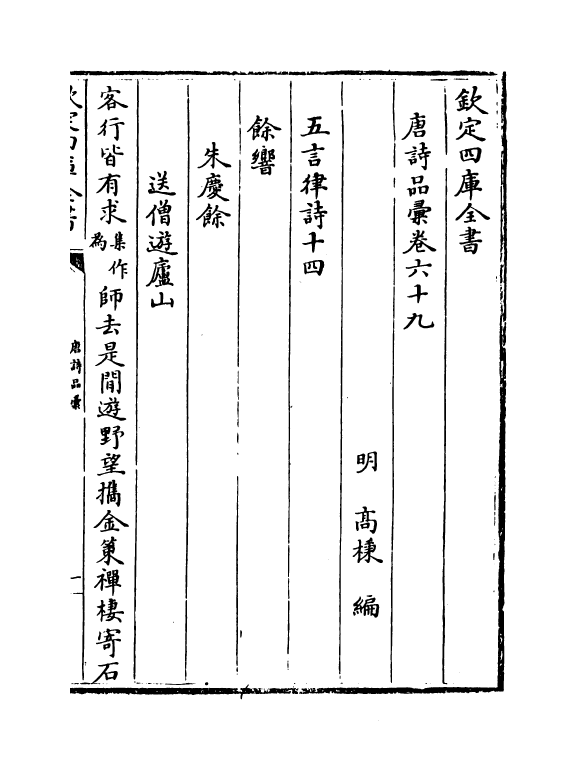 欽定四庫全書
唐詩品彚卷六十九
明 髙棅 編
五言律詩十四
餘響
朱慶餘
送僧遊廬山
客行皆有求集作為師去是閒遊野望攜金策禪棲寄石
唐詩品彚
一